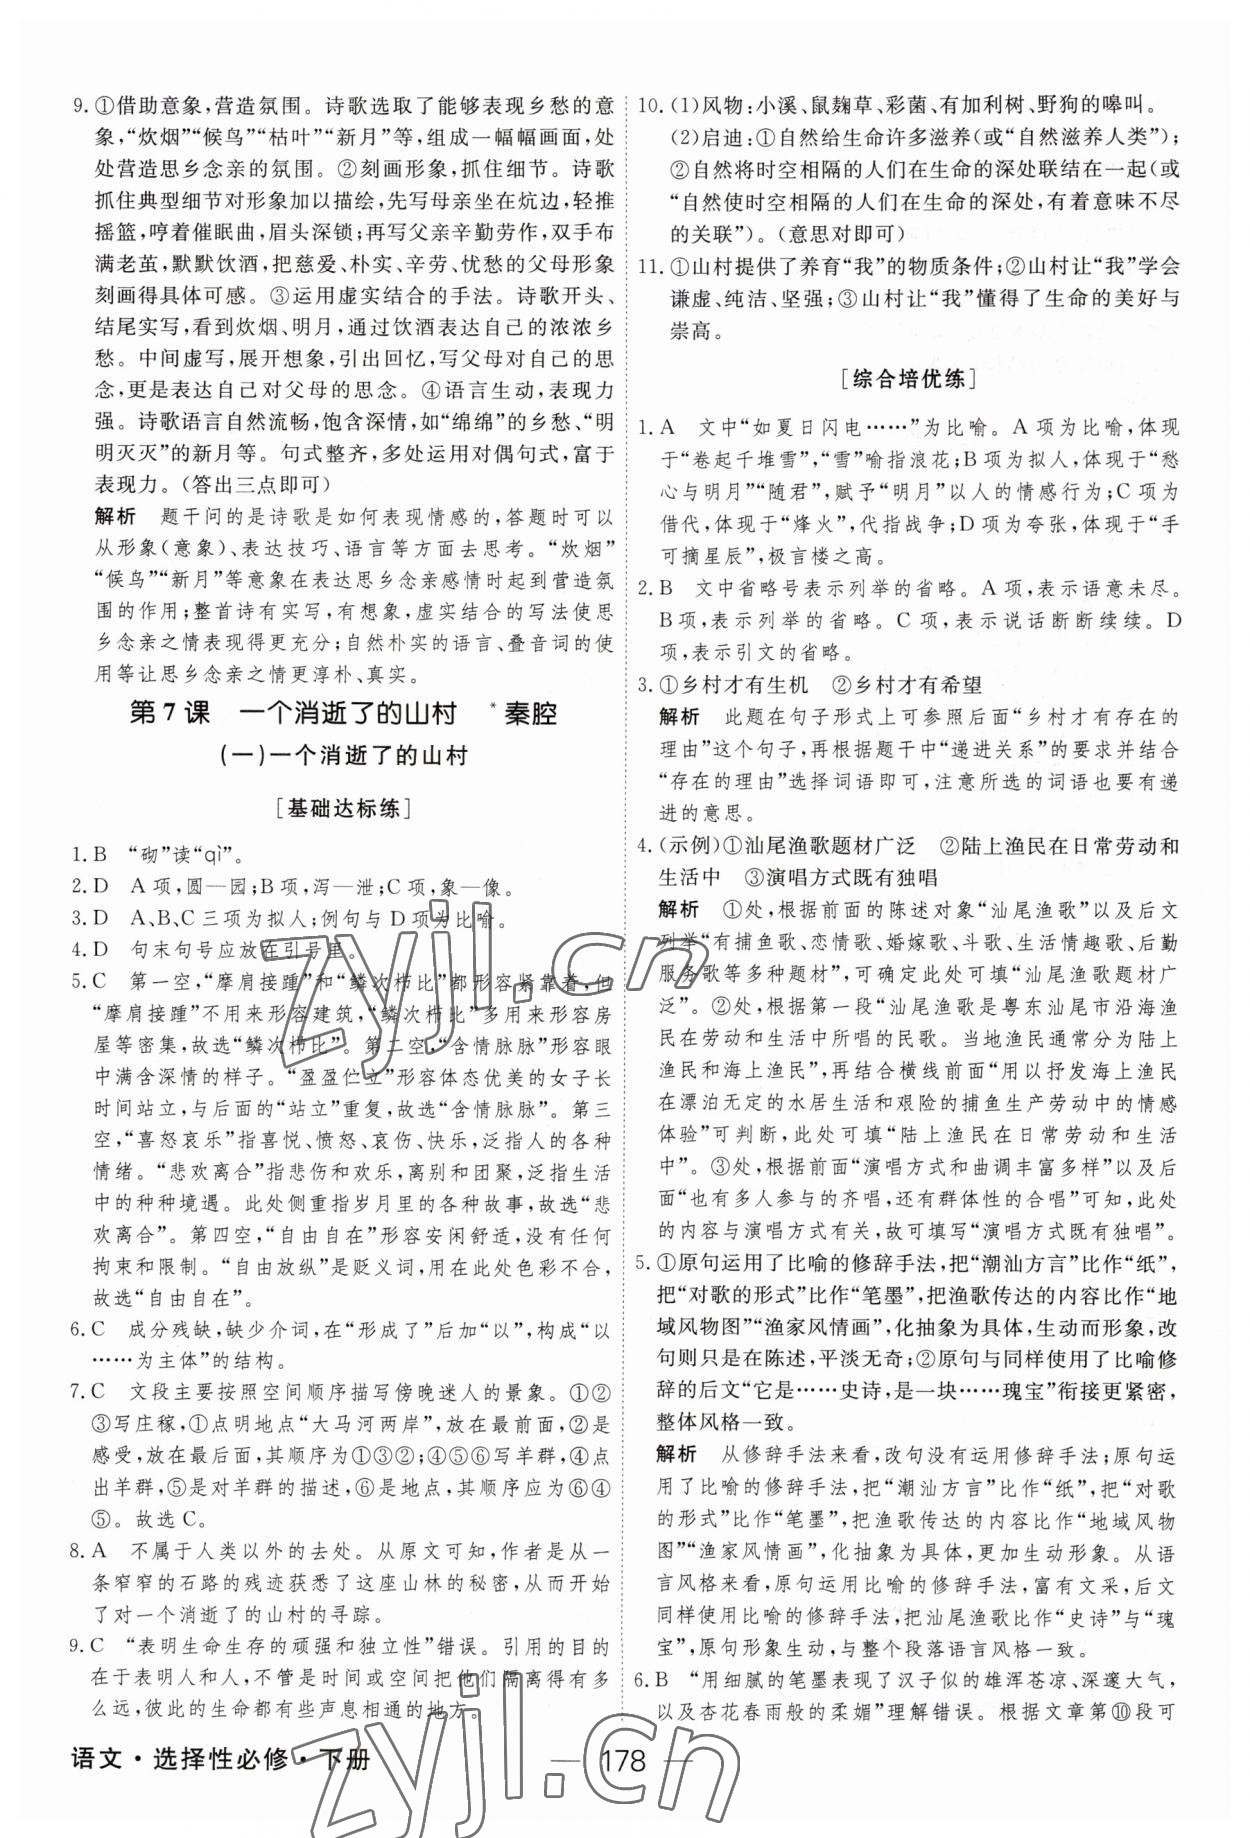 9. ①借助意象,营造氛围。诗歌选取了能够表现乡愁的意
象,“炊烟”“候鸟”“枯叶”“新月”等,组成一幅幅画面,处
处营造思乡念亲的氛围。②刻画形象,抓住细节。诗歌
抓住典型细节对形象加以描绘,先写母亲坐在炕边,轻推
摇篮,哼着催眠曲,眉头深锁;再写父亲辛勤劳作,双手布
满老茧,默默饮酒,把慈爱、朴实、辛劳、忧愁的父母形象
刻画得具体可感。③运用虚实结合的手法。诗歌开头、
结尾实写,看到炊烟、明月,通过饮酒表达自己的浓浓乡
愁。中间虚写,展开想象,引出回忆,写父母对自己的思
念,更是表达自己对父母的思念。④语言生动,表现力
强。诗歌语言自然流畅,饱含深情,如“绵绵”的乡愁、“明
明灭灭”的新月等。句式整齐,多处运用对偶句式,富于
表现力。(答出三点即可)
解析 题干问的是诗歌是如何表现情感的,答题时可以
从形象(意象)、表达技巧、语言等方面去思考。“炊烟”
“候鸟”“新月”等意象在表达思乡念亲感情时起到营造氛
围的作用;整首诗有实写,有想象,虚实结合的写法使思
乡念亲之情表现得更充分;自然朴实的语言、叠音词的使
用等让思乡念亲之情更淳朴、真实。
第7课 一个消逝了的山村 *秦腔
(一)一个消逝了的山村
[基础达标练]
1. B “砌”读“qì”。
2. D A项,圆—园;B项,泻—泄;C项,象—像。
3. D A、B、C三项为拟人;例句与D项为比喻。
4. D 句末句号应放在引号里。
5. C 第一空,“摩肩接踵”和“鳞次栉比”都形容紧靠着,但
“摩肩接踵”不用来形容建筑,“鳞次栉比”多用来形容房
屋等密集,故选“鳞次栉比”。第二空,“含情脉脉”形容眼
中满含深情的样子。“盈盈伫立”形容体态优美的女子长
时间站立,与后面的“站立”重复,故选“含情脉脉”。第三
空,“喜怒哀乐”指喜悦、愤怒、哀伤、快乐,泛指人的各种
情绪。“悲欢离合”指悲伤和欢乐,离别和团聚,泛指生活
中的种种境遇。此处侧重指岁月里的各种故事,故选“悲
欢离合”。第四空,“自由自在”形容安闲舒适,没有任何
拘束和限制。“自由放纵”是贬义词,用在此处色彩不合,
故选“自由自在”。
6. C 成分残缺,缺少介词,在“形成了”后加“以”,构成“以
……为主体”的结构。
7. C 文段主要按照空间顺序描写傍晚迷人的景象。①②
③写庄稼,①点明地点“大马河两岸”,放在最前面,②是
感受,放在最后面,其顺序为①③②;④⑤⑥写羊群,④点
出羊群,⑤是对羊群的描述,⑥是地点,其顺序应为⑥④
⑤。故选C。
8. A 不属于人类以外的去处。从原文可知,作者是从一
条窄窄的石路的残迹获悉了这座山林的秘密,从而开始
了对一个消逝了的山村的寻踪。
9. C “表明生命生存的顽强和独立性”错误。引用的目的
在于表明人和人,不管是时间或空间把他们隔离得有多
么远,彼此的生命都有些声息相通的地方。
10. (1)风物:小溪、鼠麹草、彩菌、有加利树、野狗的嗥叫。
(2)启迪:①自然给生命许多滋养(或“自然滋养人类”);
②自然将时空相隔的人们在生命的深处联结在一起(或
“自然使时空相隔的人们在生命的深处,有着意味不尽
的关联”)。(意思对即可)
11. ①山村提供了养育“我”的物质条件;②山村让“我”学会
谦虚、纯洁、坚强;③山村让“我”懂得了生命的美好与
崇高。
[综合培优练]
1. A 文中“如夏日闪电……”为比喻。A项为比喻,体现
于“卷起千堆雪”,“雪”喻指浪花;B项为拟人,体现于“愁
心与明月”“随君”,赋予“明月”以人的情感行为;C项为
借代,体现于“烽火”,代指战争;D项为夸张,体现于“手
可摘星辰”,极言楼之高。
2. B 文中省略号表示列举的省略。A项,表示语意未尽。
B项,表示列举的省略。C项,表示说话断断续续。D
项,表示引文的省略。
3. ①乡村才有生机 ②乡村才有希望
解析 此题在句子形式上可参照后面“乡村才有存在的
理由”这个句子,再根据题干中“递进关系”的要求并结合
“存在的理由”选择词语即可,注意所选的词语也要有递
进的意思。
4. (示例)①汕尾渔歌题材广泛 ②陆上渔民在日常劳动和
生活中 ③演唱方式既有独唱
解析 ①处,根据前面的陈述对象“汕尾渔歌”以及后文
列举“有捕鱼歌、恋情歌、婚嫁歌、斗歌、生活情趣歌、后勤
服务歌等多种题材”,可确定此处可填“汕尾渔歌题材广
泛”。②处,根据第一段“汕尾渔歌是粤东汕尾市沿海渔
民在劳动和生活中所唱的民歌。当地渔民通常分为陆上
渔民和海上渔民”,再结合横线前面“用以抒发海上渔民
在漂泊无定的水居生活和艰险的捕鱼生产劳动中的情感
体验”可判断,此处可填“陆上渔民在日常劳动和生活
中”。③处,根据前面“演唱方式和曲调丰富多样”以及后
面“也有多人参与的齐唱,还有群体性的合唱”可知,此处
的内容与演唱方式有关,故可填写“演唱方式既有独唱”。
5. ①原句运用了比喻的修辞手法,把“潮汕方言”比作“纸”,
把“对歌的形式”比作“笔墨”,把渔歌传达的内容比作“地
域风物图”“渔家风情画”,化抽象为具体,生动而形象,改
句则只是在陈述,平淡无奇;②原句与同样使用了比喻修
辞的后文“它是……史诗,是一块……瑰宝”衔接更紧密,
整体风格一致。
解析 从修辞手法来看,改句没有运用修辞手法;原句运
用了比喻的修辞手法,把“潮汕方言”比作“纸”,把“对歌
的形式”比作“笔墨”,把渔歌传达的内容比作“地域风物
图”“渔家风情画”,化抽象为具体,更加生动形象。从语
言风格来看,原句运用比喻的修辞手法,富有文采,后文
同样使用比喻的修辞手法,把汕尾渔歌比作“史诗”与“瑰
宝”,原句形象生动,与整个段落语言风格一致。
6. B “用细腻的笔墨表现了汉子似的雄浑苍凉、深邃大气,
以及杏花春雨般的柔媚”理解错误。根据文章第⑩段可
语文·选择性必修·下册 — 178 —
zyjl.cn
zyjl.cn